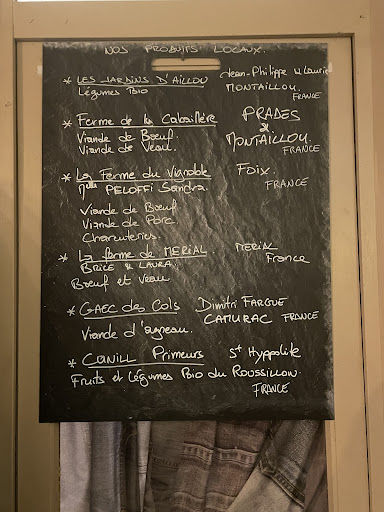 NOS PRODUITS LOCAUX.
* LES JARDINS D'AILLOU Jean-Philippe & Laurie
Légumes Bio MONTAILLOU.
FRANCE
* Ferme de la PRADES
Viande de Boeuf. &
Viande de Veau. MONTAILLOU.
FRANCE
* La Ferme du Vignoble Foix.
Melle PELOFFI Sandra. FRANCE
Viande de Boeuf
Viande de Porc.
Charcuteries.
* La ferme de MERIAL MERIAL
BRICE & LAURA. France
Boeuf et Veau
* GAEC des Cols Dimitri FARGUE
CAMURAC FRANCE
Viande d'agneau.
* CANILL Primeurs St Hyppolite
Fruits et légumes Bio du ROUSSILLON.
FRANCE